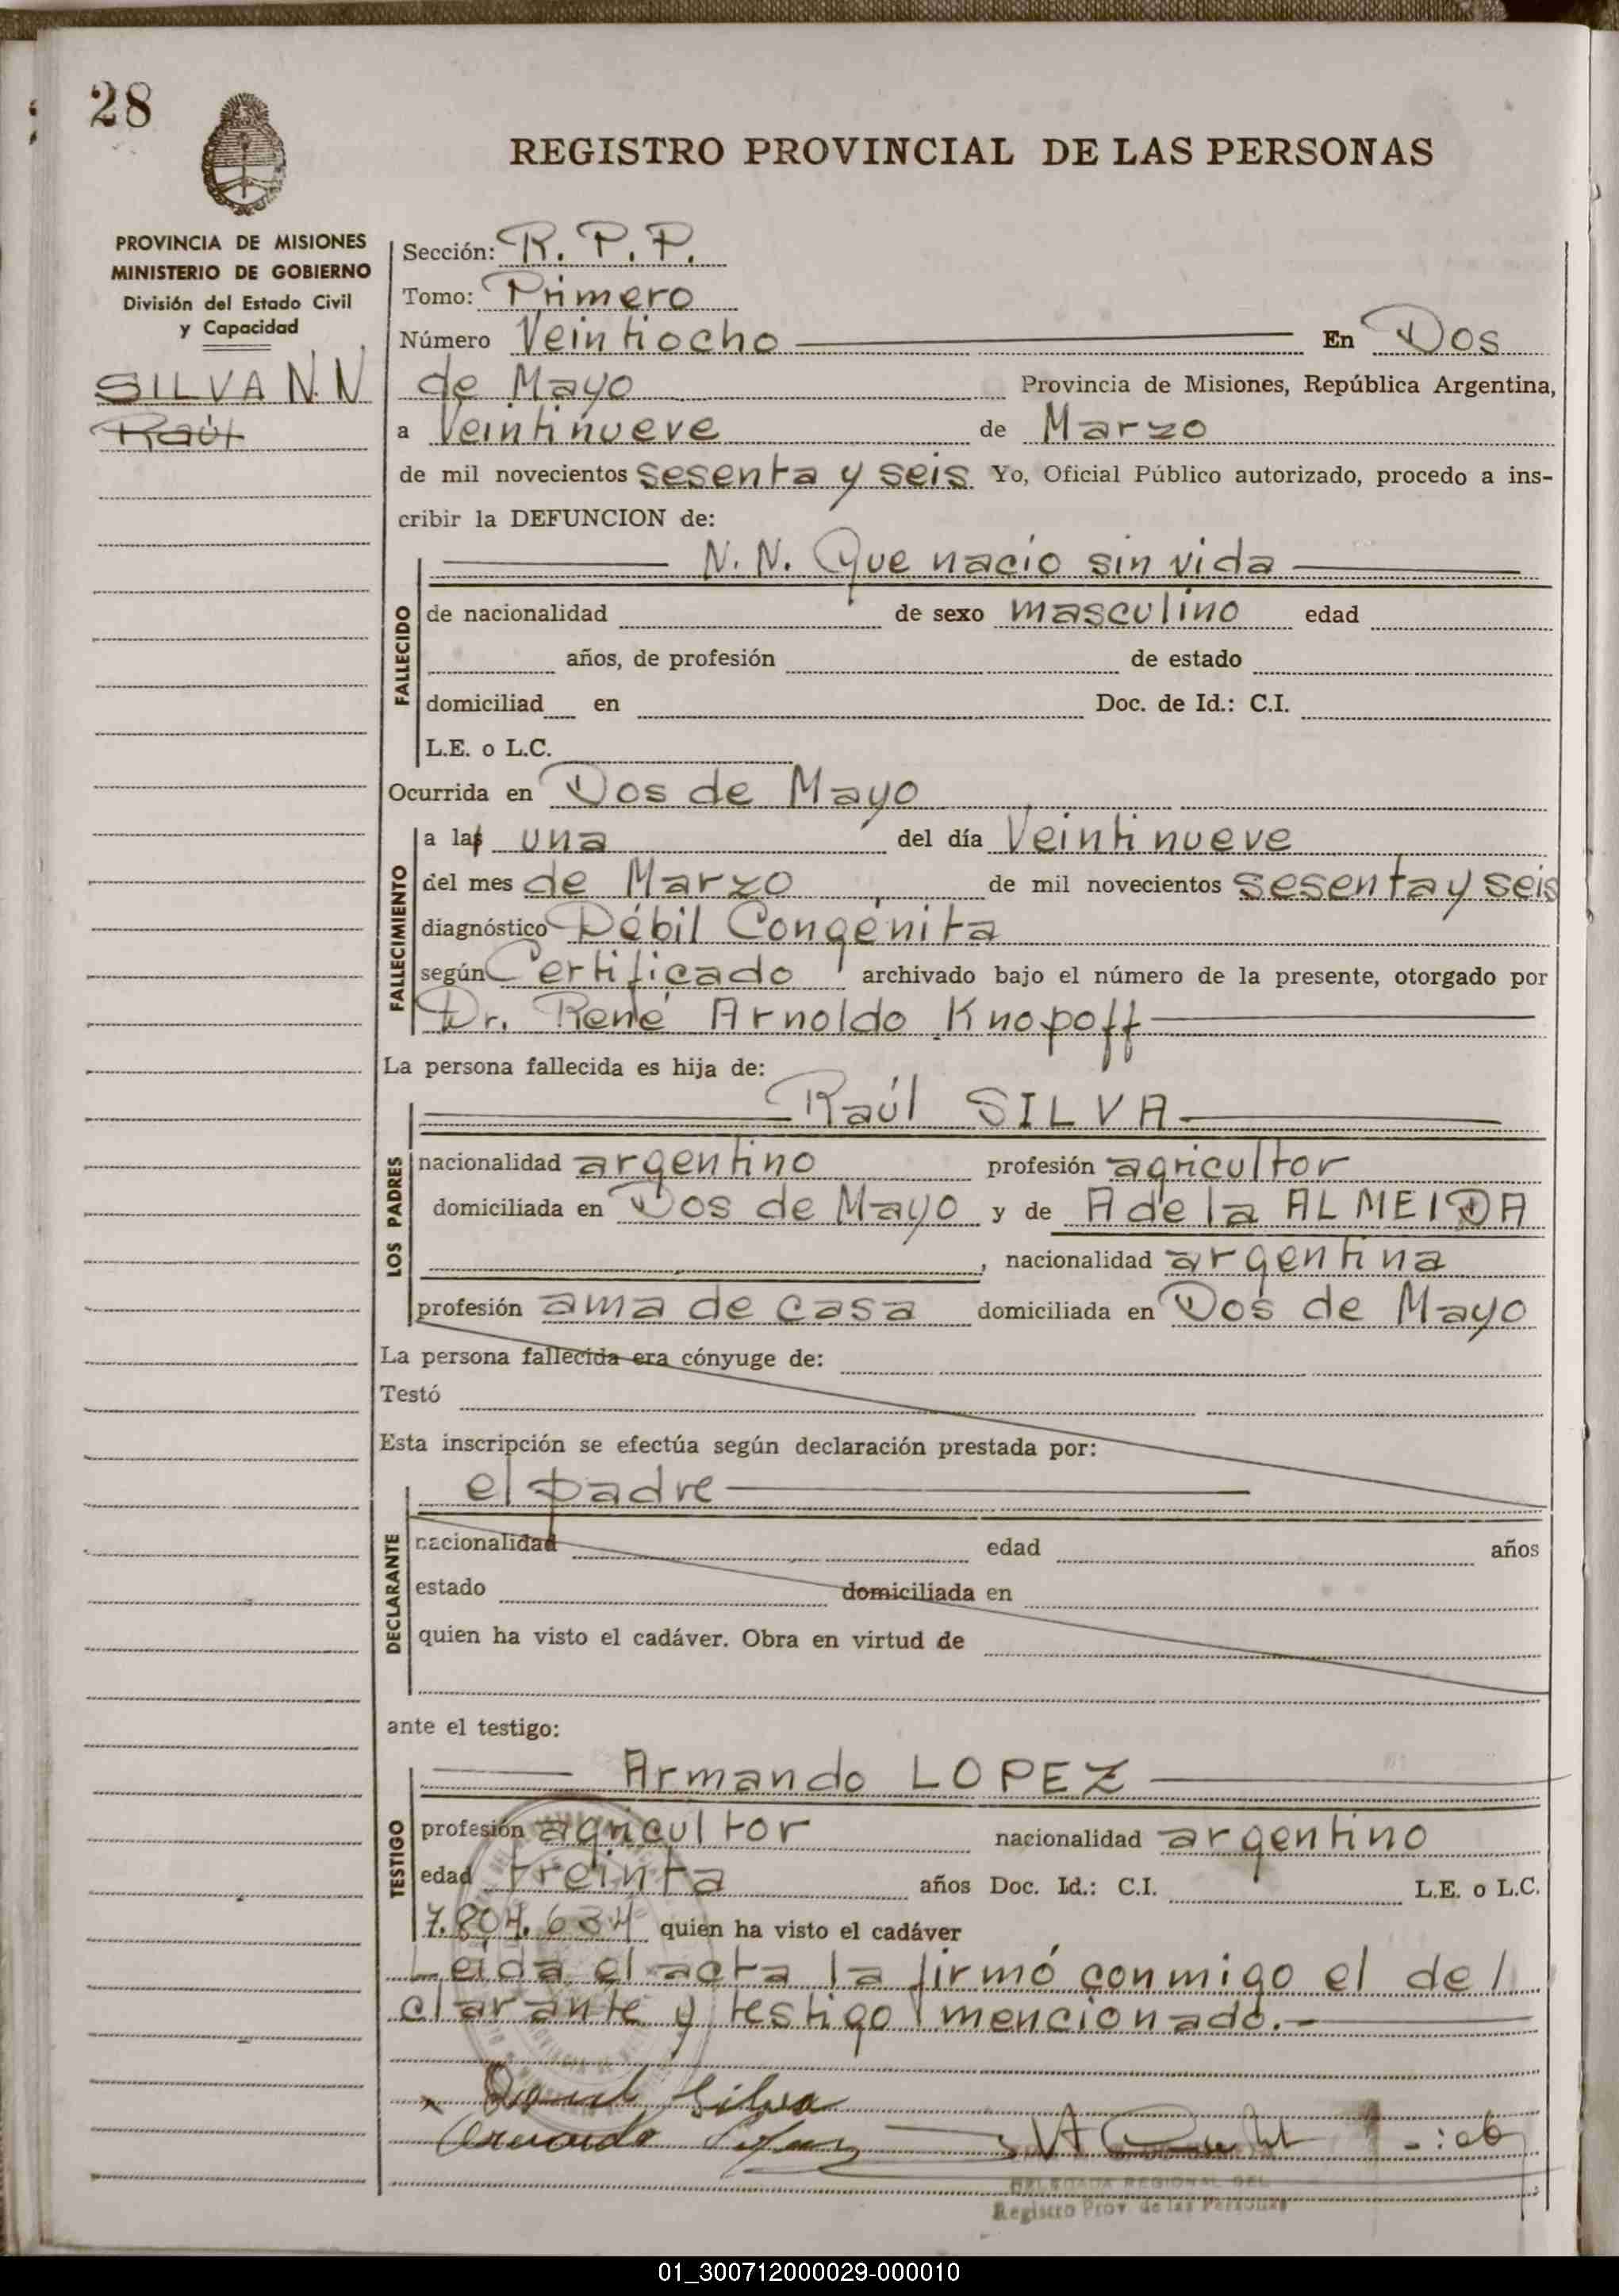 28
REGISTRO PROVINCIAL DE LAS PERSONAS
PROVINCIA DE MISIONES
MINISTERIO DE GOBIERNO
División del Estado Civil
y Capacidad
SILVA N.N
Raúl
Sección: R. P. P.
Tomo: Primero
Número Veintiocho En Dos
de Mayo Provincia de Misiones, República Argentina,
a Veintinueve de Marzo
de mil novecientos sesenta y seis Yo, Oficial Público autorizado, procedo a ins-
cribir la DEFUNCION de:
N. N. Que nació sin vida
FALLECIDO
de nacionalidad de sexo masculino edad
años, de profesión de estado
domiciliad en Doc. de Id.: C.I.
L.E. o L.C.
Ocurrida en Dos de Mayo
FALLECIMIENTO
a las una del día Veintinueve
del mes de Marzo de mil novecientos sesenta y seis
diagnóstico Débil Congénita
según Certificado archivado bajo el número de la presente, otorgado por
Dr. René Arnoldo Knopoff
La persona fallecida es hija de:
Raúl SILVA
LOS PADRES
nacionalidad argentino profesión agricultor
domiciliada en Dos de Mayo y de Adela ALMEIDA
, nacionalidad argentina
profesión ama de casa domiciliada en Dos de Mayo
La persona fallecida era cónyuge de:
Testó
Esta inscripción se efectúa según declaración prestada por:
el padre
DECLARANTE
nacionalidad edad años
estado domiciliada en
quien ha visto el cadáver. Obra en virtud de
ante el testigo:
Armando LOPEZ
TESTIGO
profesión agricultor nacionalidad argentino
edad treinta años Doc. Id.: C.I. L.E. o L.C.
7.804.634 quien ha visto el cadáver
Leida el acta la firmó conmigo el de/
clarante y testigo mencionado.-
Silva
DELEGADA REGIONAL DEL
Registro Prov. de las Personas
01_300712000029-000010